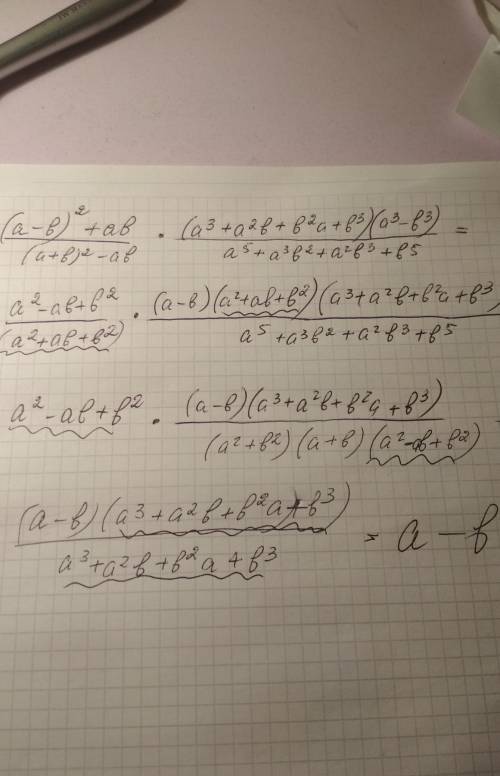 (a-b)² + ab / (a+b)² - ab · (a³ + a²b + b²a + b³)(a³ - b³) / a⁵ + a³b² + a²b³ + b⁵ =
a² - ab + b² / (a² + ab + b²) · (a-b)(a² + ab + b²)(a³ + a²b + b²a + b³) / a⁵ + a³b² + a²b³ + b⁵
a² - ab + b² · (a-b)(a³ + a²b + b²a + b³) / (a² + b²)(a+b)(a² - ab + b²)
(a-b)(a³ + a²b + b²a + b³) / a³ + a²b + b²a + b³ = a - b